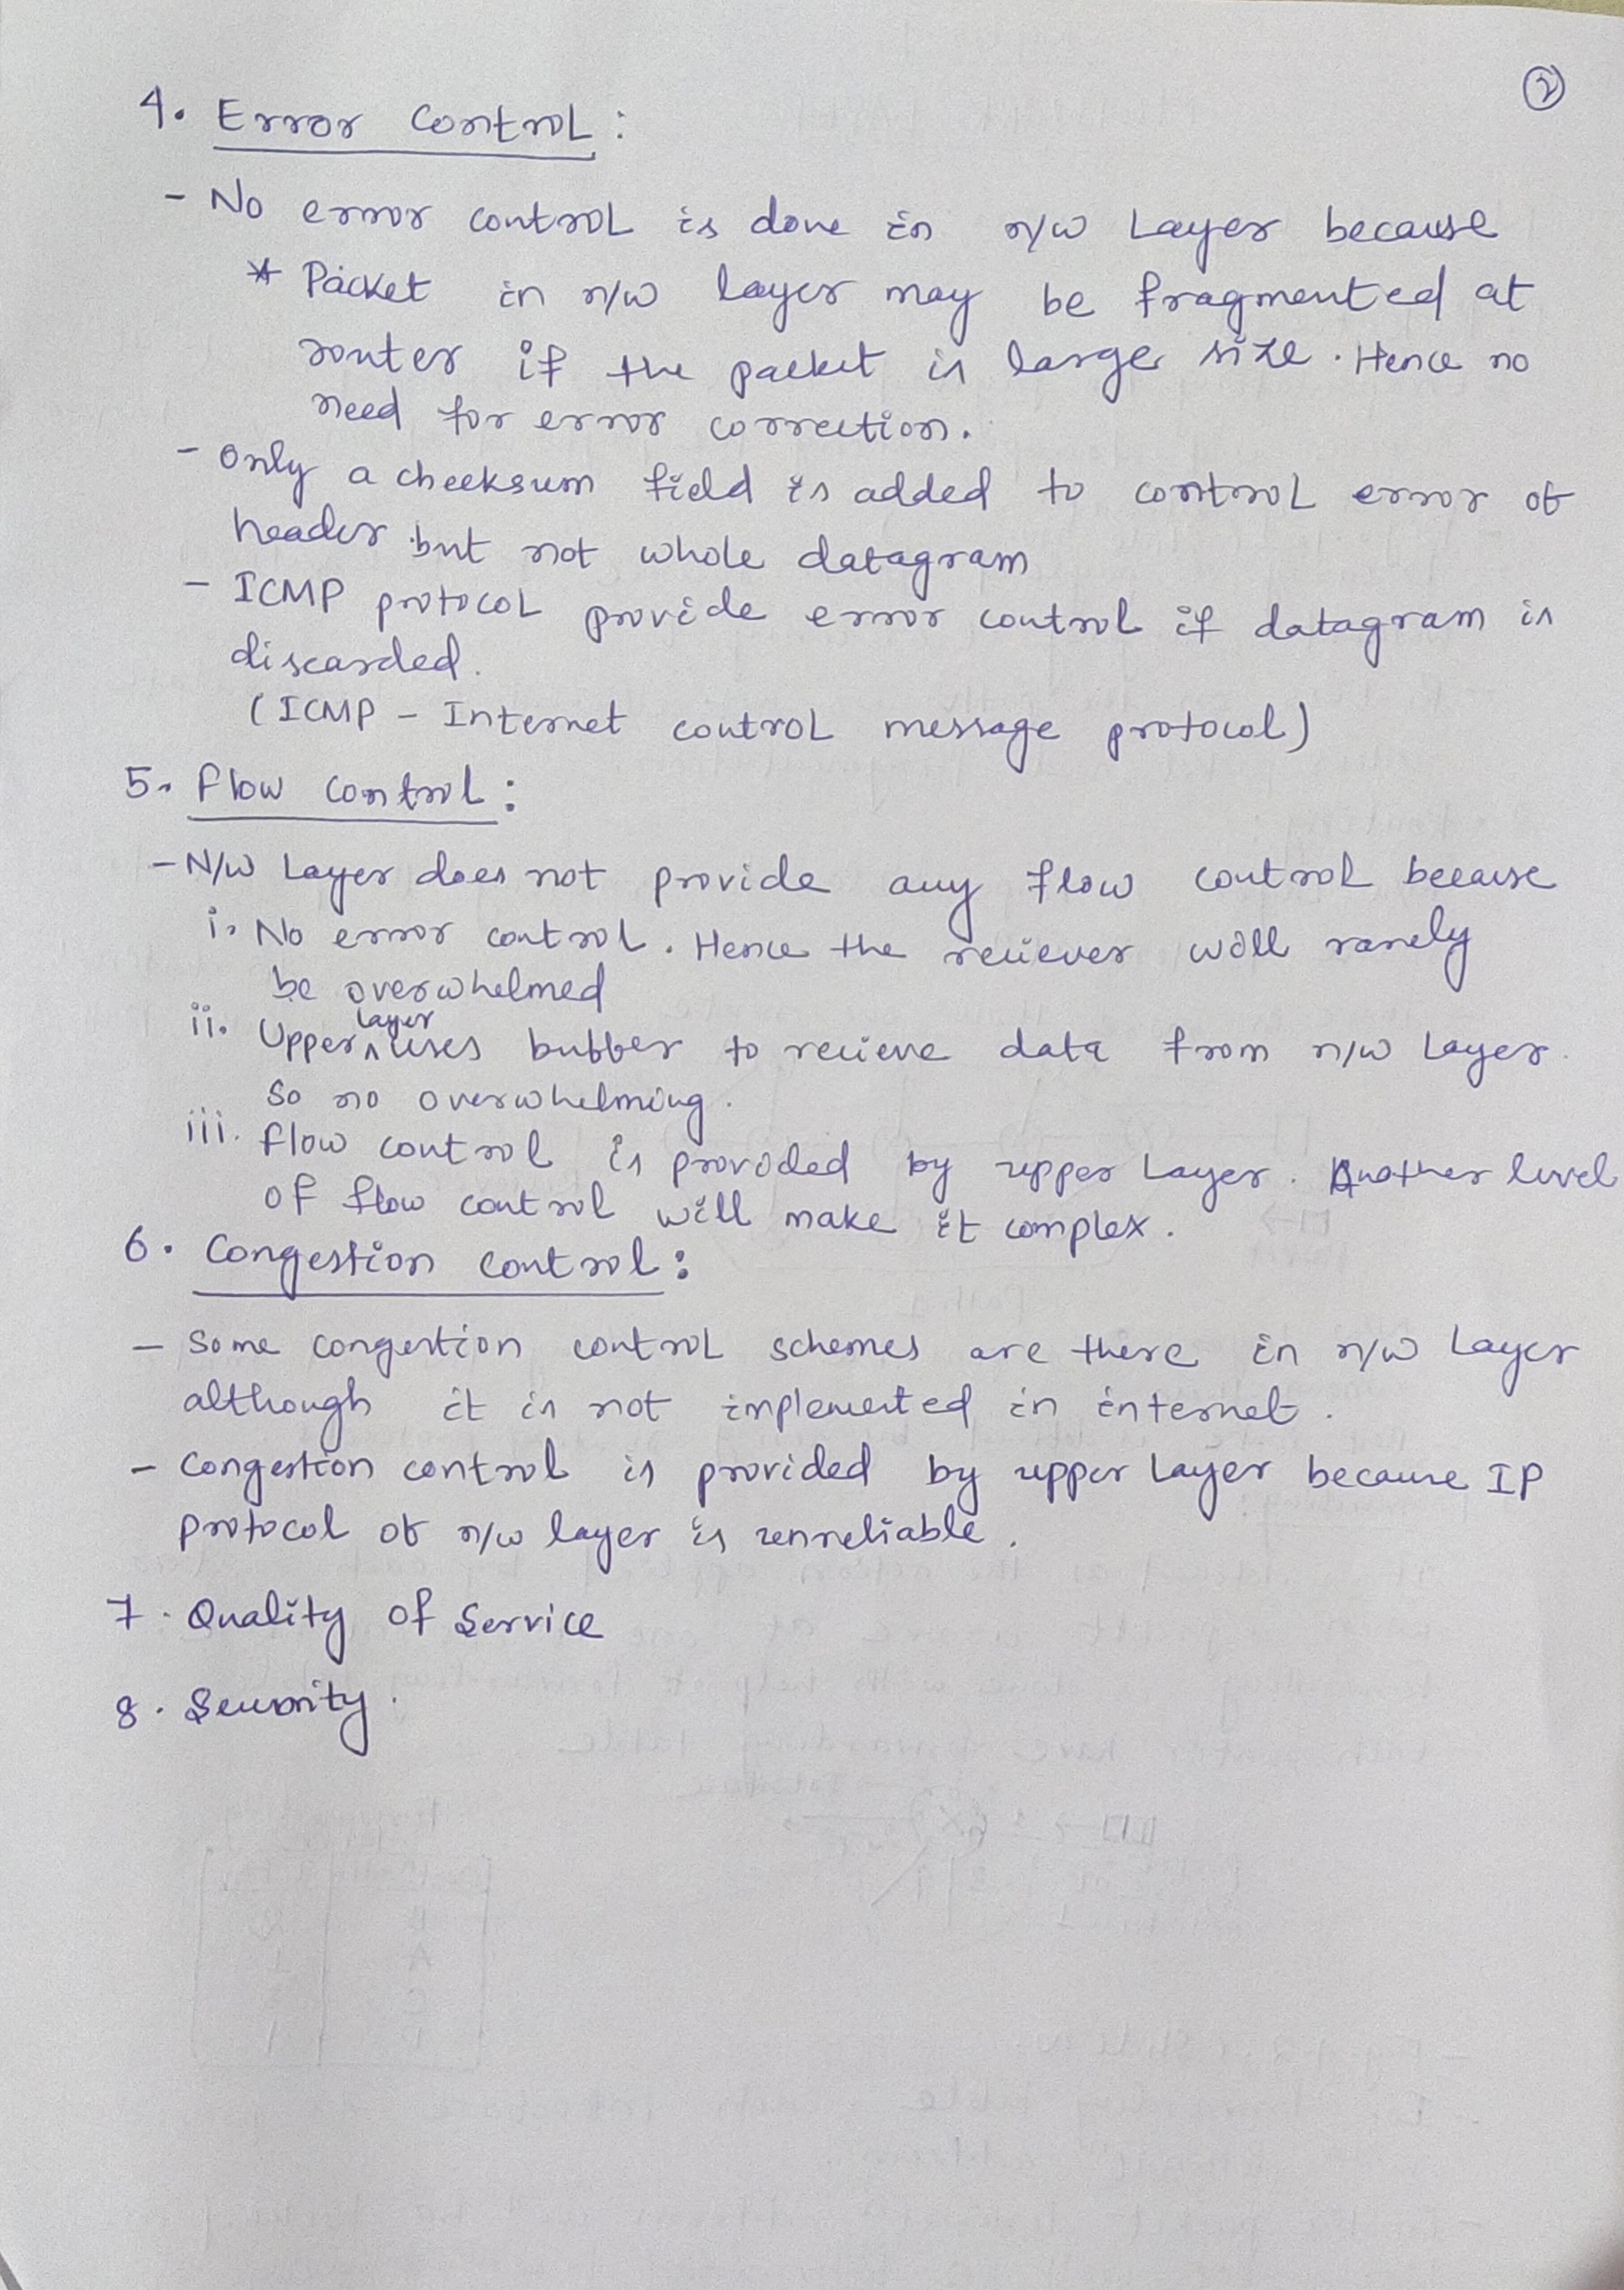 2
4. Error Control :
- No error control is done in n/w Layer because
* Packet in n/w layer may be fragmented at
router if the packet is large size. Hence no
need for error correction.
- Only a checksum field is added to control error of
header but not whole datagram
- ICMP protocol provide error control if datagram is
discarded.
(ICMP - Internet control message protocol)
5. Flow Control :
- N/w Layer does not provide any flow control because
i. No error control. Hence the reciever will rarely
be overwhelmed
ii. Upper layer uses buffer to recieve data from n/w Layer.
So no overwhelming.
iii. Flow control is provided by upper Layer. Another level
of flow control will make it complex.
6. Congestion Control :
- Some congestion control schemes are there in n/w Layer
although it is not implemented in internet.
- Congestion control is provided by upper Layer because IP
protocol of n/w layer is unreliable.
7. Quality of Service
8. Security.